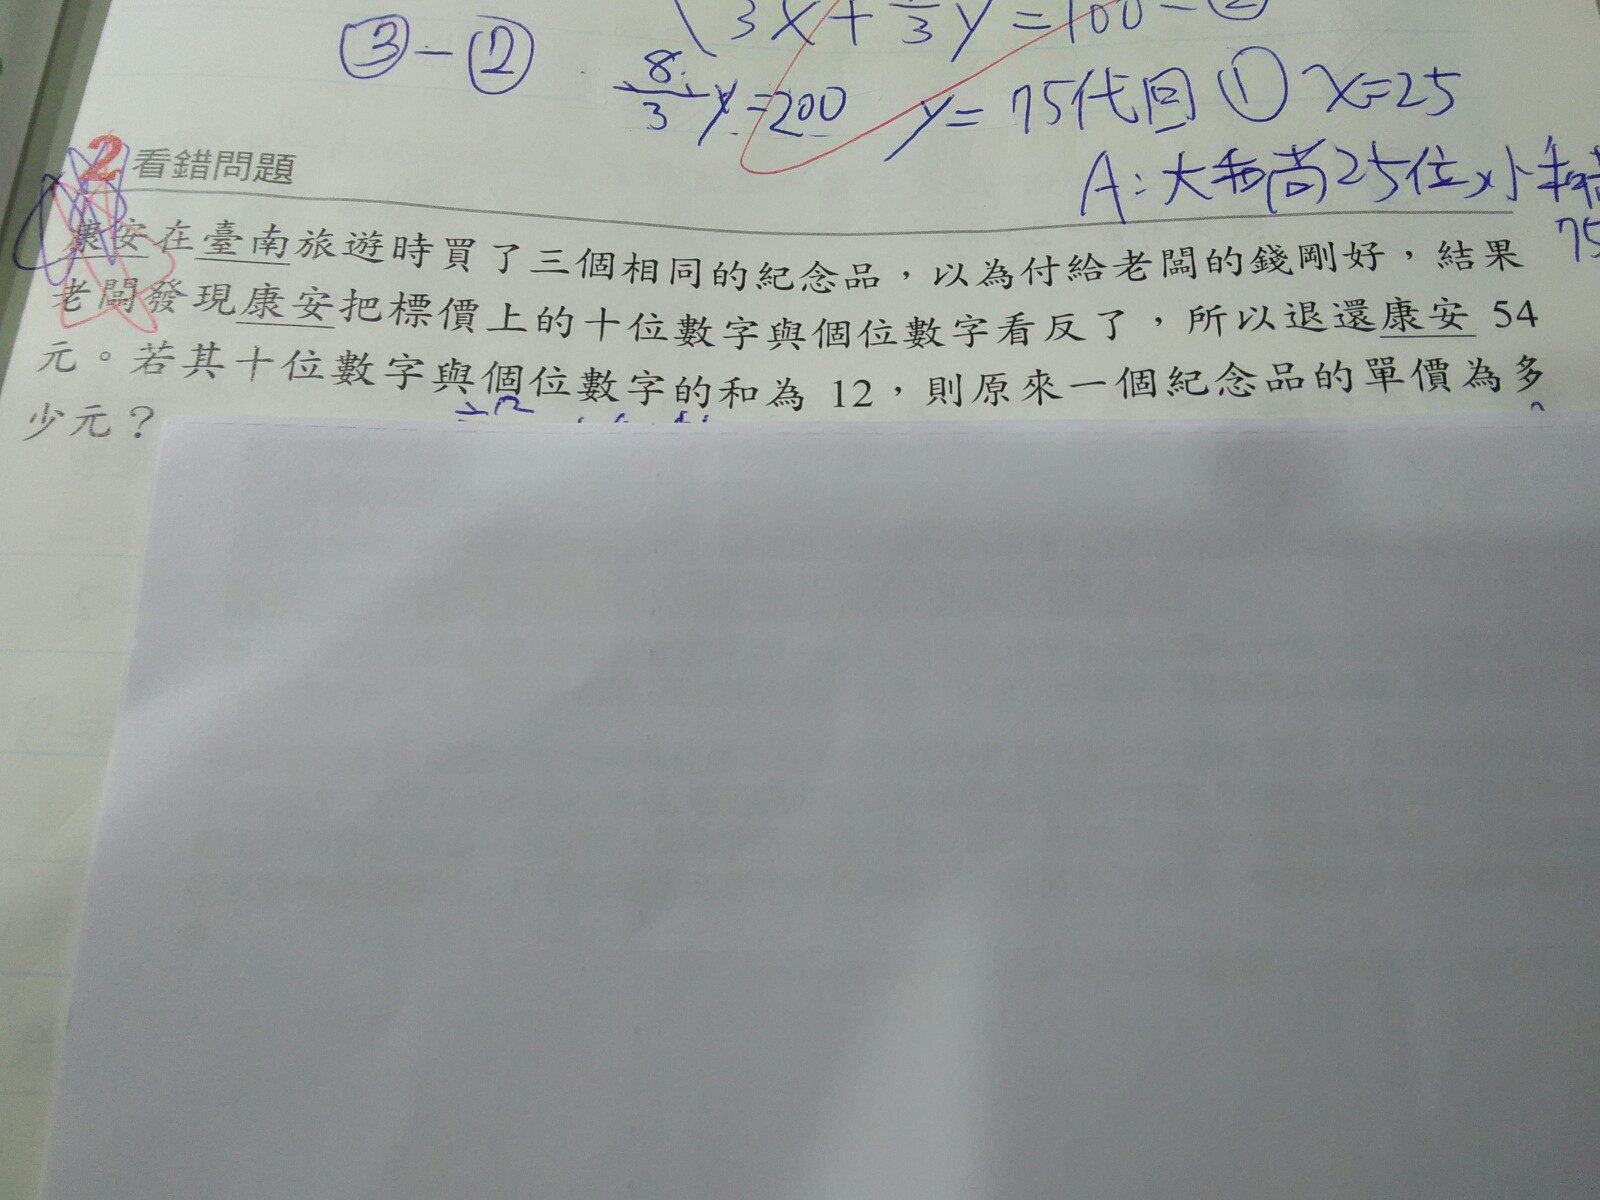 3x+ /3 y=100-②
③-②
8/3 y=200 y=75代回① x=25
A:大和尚25位,小和尚
75
2 看錯問題
康安在臺南旅遊時買了三個相同的紀念品，以為付給老闆的錢剛好，結果
老闆發現康安把標價上的十位數字與個位數字看反了，所以退還康安 54
元。若其十位數字與個位數字的和為 12，則原來一個紀念品的單價為多
少元？